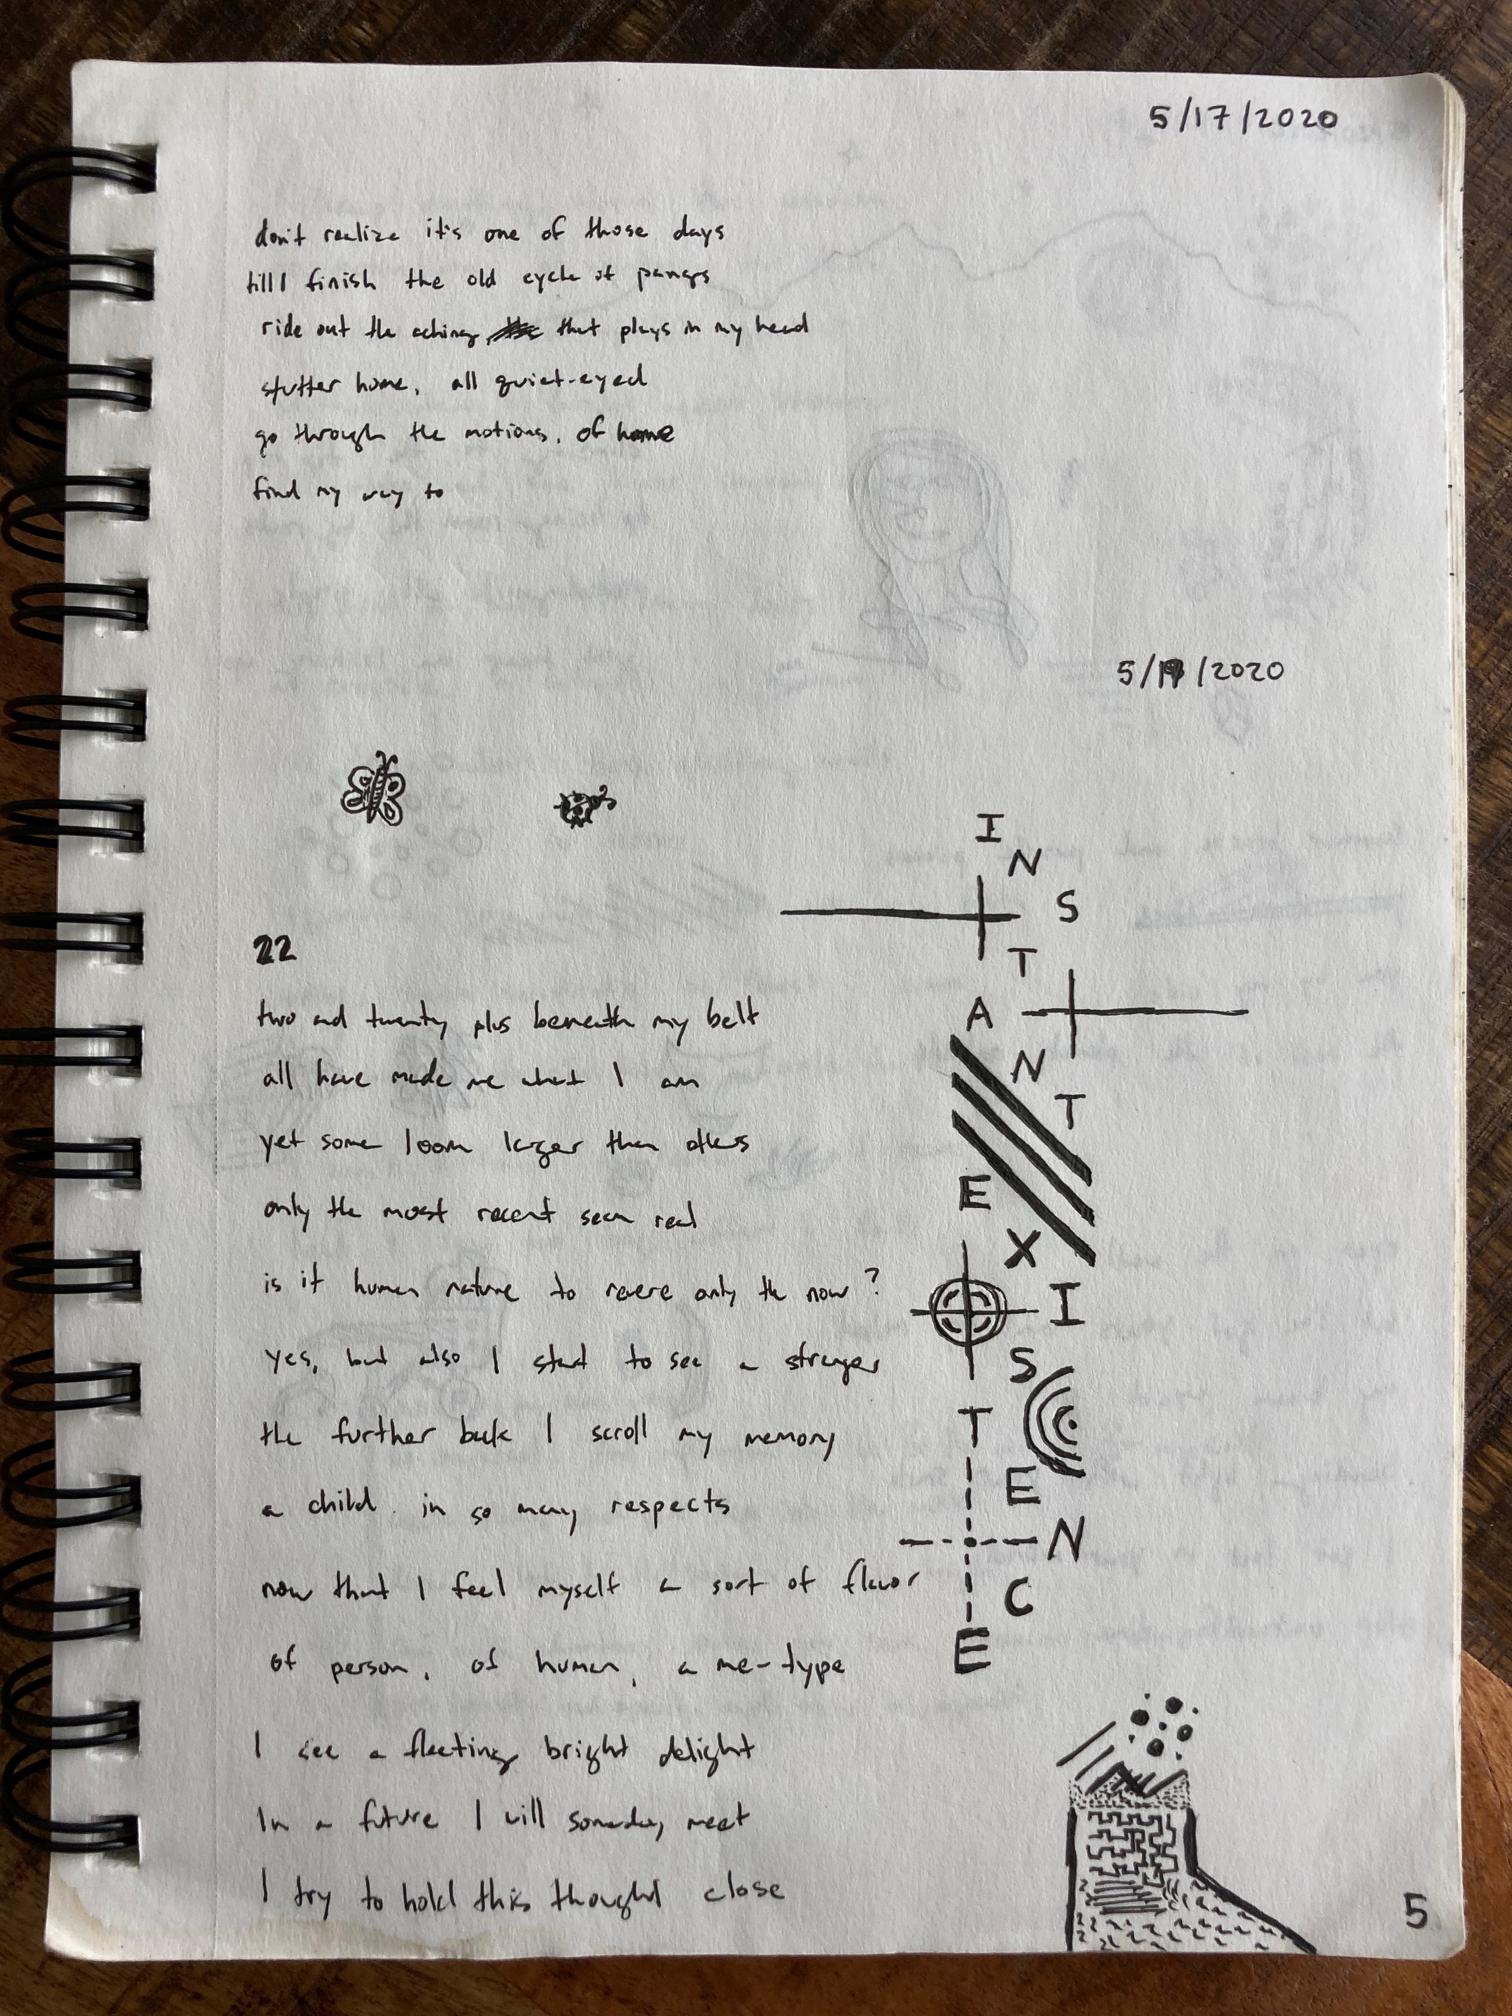 5/17/2020
don't realize it's one of those days
till I finish the old cycle of pangs
ride out the aching that plays in my head
stutter home, all quiet-eyed
go through the motions, of home
find my way to
5/19/2020
22
two and twenty plus beneath my belt
all have made me what I am
yet some loom larger than others
only the most recent seem real
is it human nature to revere only the now?
yes, but also I start to see a stranger
the further back I scroll my memory
a child in so many respects
now that I feel myself a sort of flavor
of person, of human, a me-type
I see a fleeting bright delight
In a future I will someday meet
I try to hold this thought close
INSTANT
EXISTENCE
5